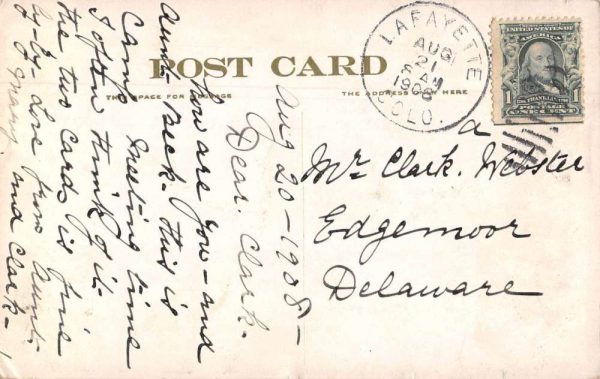 POST CARD
THE SPACE FOR MESSAGE
THE ADDRESS ONLY HERE
LAFAYETTE
AUG
21
8 AM
1908
COLO.
UNITED STATES OF
AMERICA
1
FRANKLIN
POSTAGE
ONE CENT
Mr. Clark. Webster
Edgemoor
Delaware
Aug 20 - 1908 -
Dear. Clark.
How are you - and
Aunt. Beck. this is
Camp Meeting time
I often think of it.
the two cards is fine
by-by- Love from Aunt.
Mary and Clark -